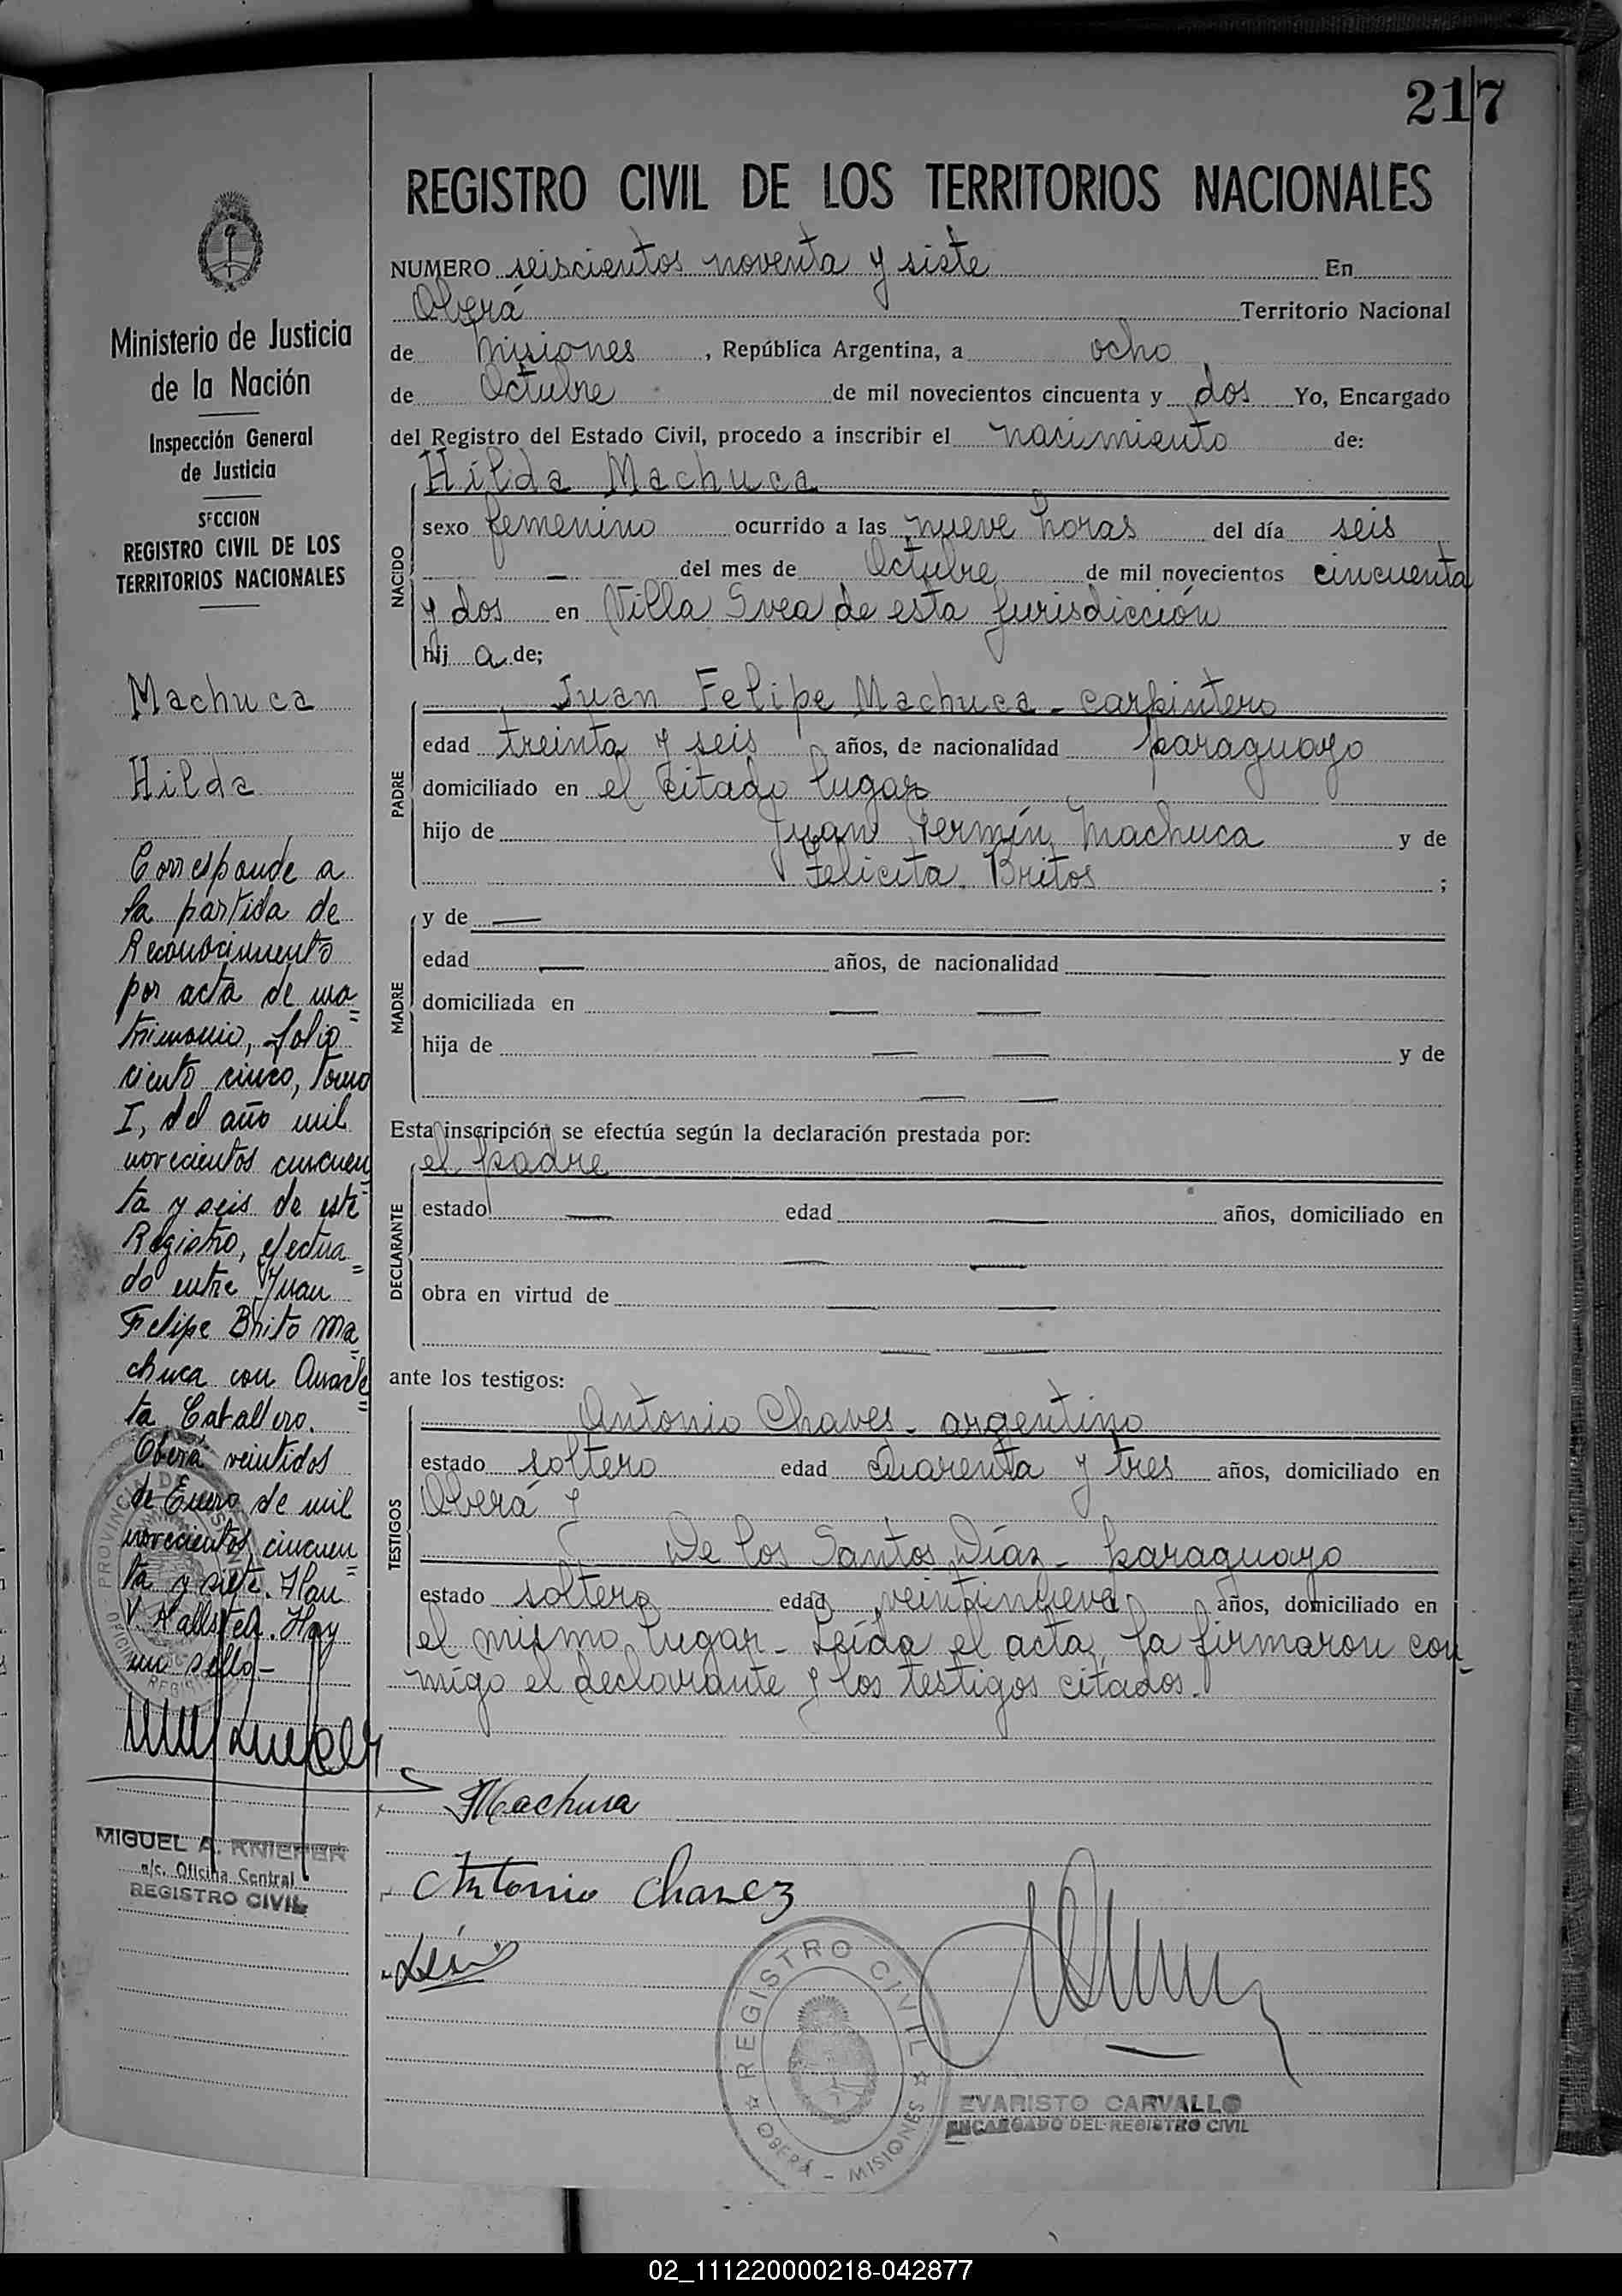 217
REGISTRO CIVIL DE LOS TERRITORIOS NACIONALES
NUMERO seiscientos noventa y siete En
Oberá Territorio Nacional
de Misiones, República Argentina, a ocho
de Octubre de mil novecientos cincuenta y dos Yo, Encargado
del Registro del Estado Civil, procedo a inscribir el nacimiento de:
Hilda Machuca
NACIDO
sexo femenino ocurrido a las nueve horas del día seis
— del mes de Octubre de mil novecientos cincuenta
y dos en Villa Svea de esta jurisdicción
hij a de;
Juan Felipe Machuca - carpintero
PADRE
edad treinta y seis años, de nacionalidad paraguayo
domiciliado en el citado lugar
hijo de Juan Fermín Machuca y de
Felicita Britos ;
MADRE
y de —
edad — años, de nacionalidad —
domiciliada en — —
hija de — — y de
— —
Esta inscripción se efectúa según la declaración prestada por:
el padre
DECLARANTE
estado — edad — años, domiciliado en
— —
obra en virtud de — —
— —
ante los testigos:
TESTIGOS
Antonio Chaves - argentino
estado soltero edad cuarenta y tres años, domiciliado en
Oberá y
De los Santos Díaz - paraguayo
estado soltero edad veintinueve años, domiciliado en
el mismo lugar - Leída el acta, la firmaron con-
migo el declarante y los testigos citados.
Machuca
Antonio Chavez
REGISTRO CIVIL
OBERÁ - MISIONES
EVARISTO CARVALLO
ENCARGADO DEL REGISTRO CIVIL
Ministerio de Justicia
de la Nación
Inspección General
de Justicia
SECCION
REGISTRO CIVIL DE LOS
TERRITORIOS NACIONALES
Machuca
Hilda
Corresponde a
la partida de
Reconocimiento
por acta de ma=
trimonio, folio
ciento cinco, tomo
I, del año mil
novecientos cincuen=
ta y seis de este
Registro, efectua=
do entre Juan
Felipe Brito Ma=
chuca con
ta Caballero.
Oberá veintidos
de Enero de mil
novecientos cincuen=
ta y siete.
V. Hay
un sello -
MIGUEL A. KNIEPER
a/c. Oficina Central
REGISTRO CIVIL
02_111220000218-042877